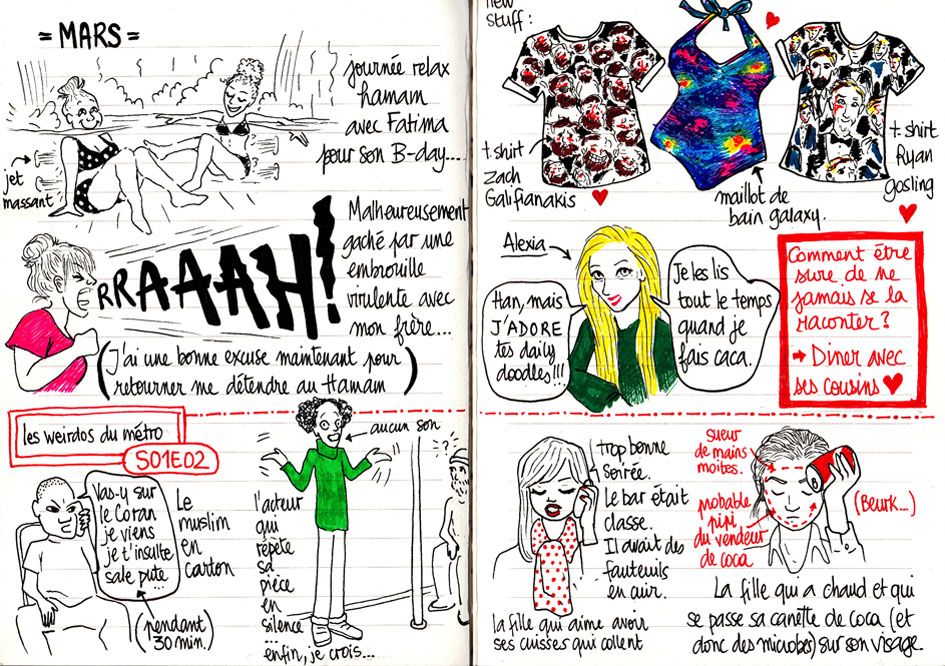 = MARS =
journée relax
hamam
avec Fatima
pour son B-day...
jet
massant
RRAAAAH!
Malheureusement
gaché par une
embrouille
virulente avec
mon frère...
(J'ai une bonne excuse maintenant pour
retourner me détendre au Hamam)
les weirdos du métro
S01E02
Vas-y sur
le Coran
je viens
je t'insulte
sale pute...
(pendant
30 min.)
Le
muslim
en
carton
aucun son
l'acteur
qui
répète
sa
pièce
en
silence
...enfin, je crois...
?
?
new
stuff:
t.shirt
Zach
Galifianakis
maillot de
bain galaxy.
t.shirt
Ryan
gosling
Alexia
Han, mais
J'ADORE
tes daily
doodles!!!
Je les lis
tout le temps
quand je
fais caca.
Comment être
sure de ne
jamais se la
raconter?
→ Diner avec
ses cousins ♥
trop bonne
soirée.
Le bar était
classe.
Il avait des
fauteuils
en cuir.
la fille qui aime avoir
ses cuisses qui collent
sueur
de mains
moites.
probable
pipi
du vendeur
de coca
(Beurk...)
La fille qui a chaud et qui
se passe sa canette de coca (et
donc des microbes) sur son visage